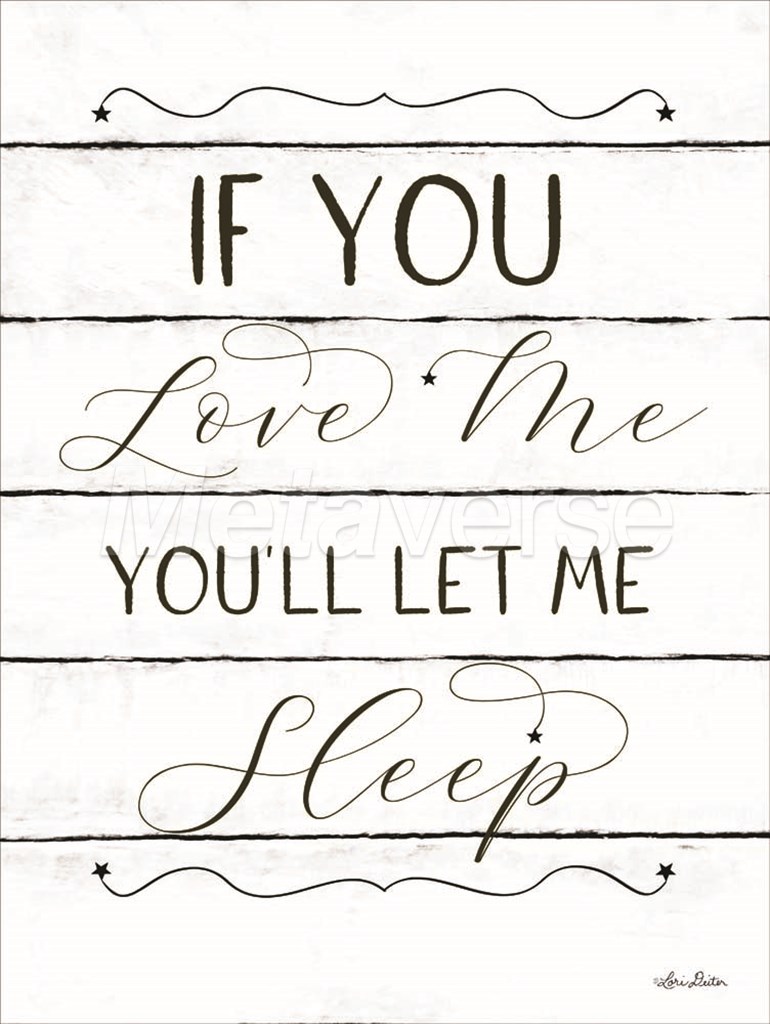 IF YOU
Love Me
Metaverse
YOU'LL LET ME
Sleep
©Lori Deiter